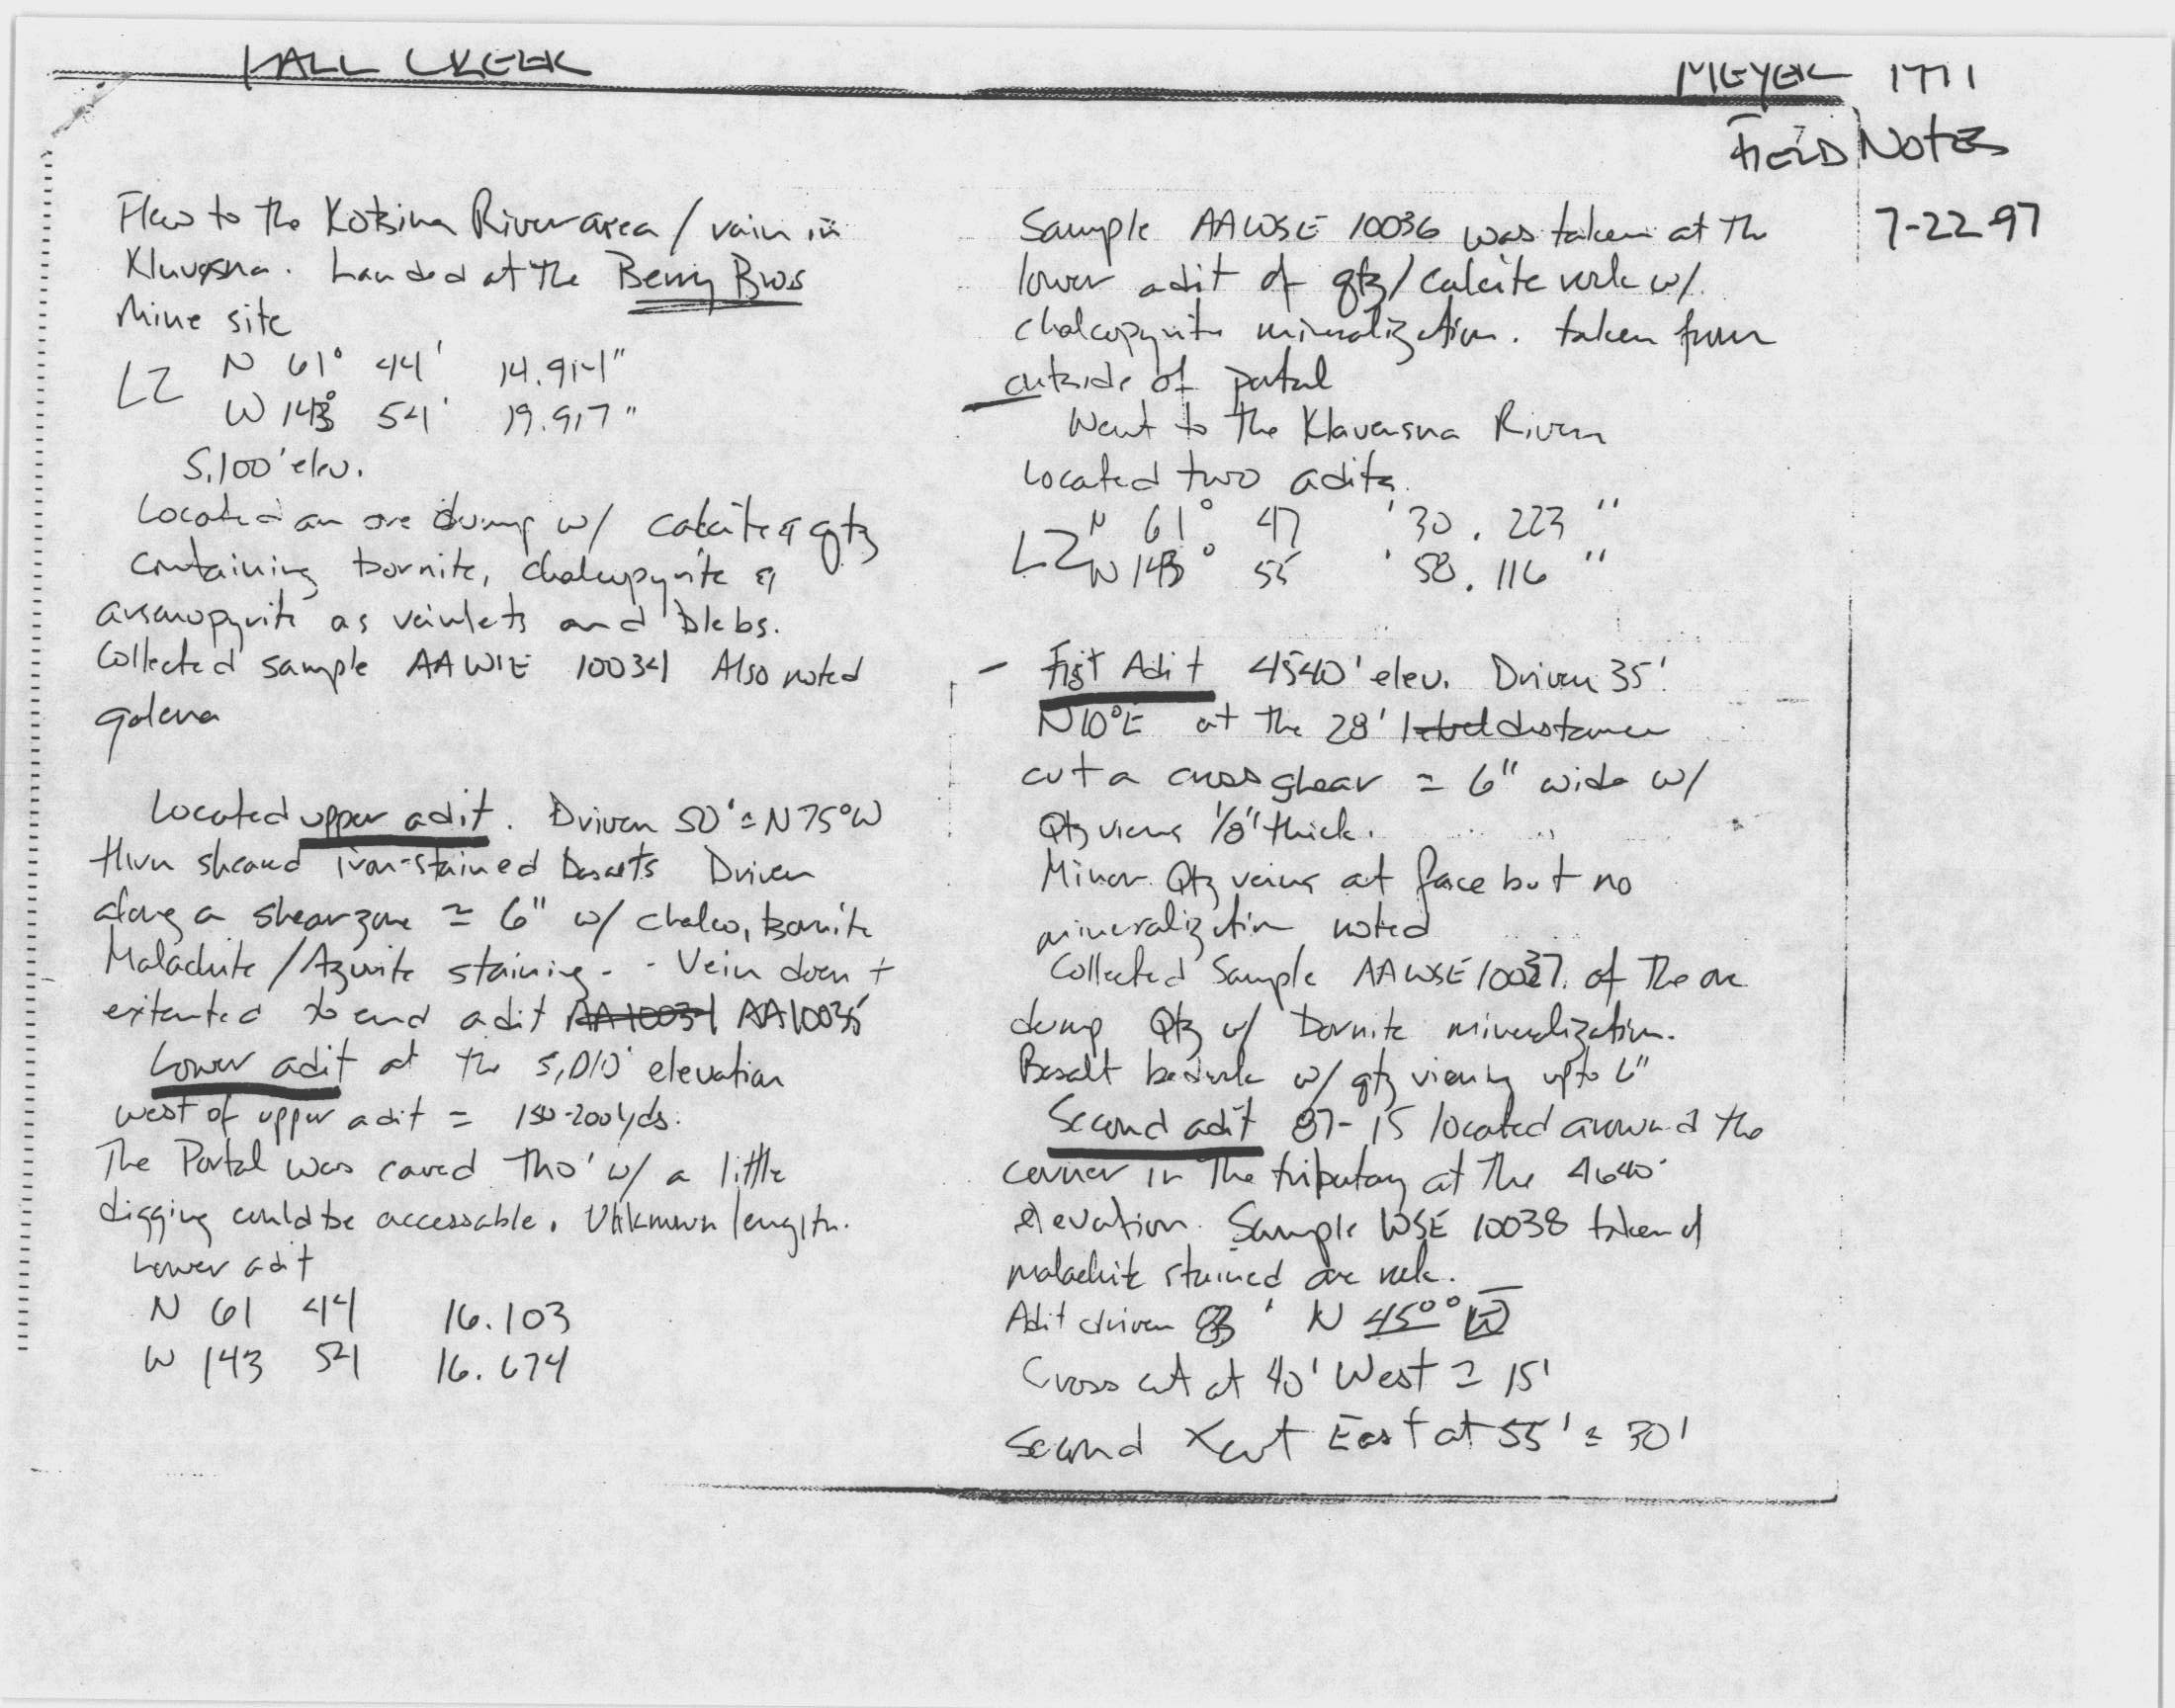 HALL CREEK
MEYER 1997
FIELD NOTES
7-22-97
Flew to the Kotsina River area / rain in
Kluvesna. Landed at the Berry Bros
Mine site
LZ N 61° 44' 14.914"
W 143° 54' 19.917"
5,100' elev.
Located an ore dump w/ calcite & qtz
containing bornite, chalcopyrite &
arsenopyrite as veinlets and blebs.
Collected sample AAWSE 10034 Also noted
galena
Located upper adit. Driven 50' ≈ N75°W
thru sheared iron-stained basalts Driven
along a shear zone ≈ 6" w/ chalco, bornite
Malachite / Azurite staining - - Vein doen't
extented to end adit AA10034 AA10035
Lower adit at the 5,010' elevation
west of upper adit ≈ 150-200 yds.
The Portal was caved tho' w/ a little
digging could be accessable. Unknown length.
Lower adit
N 61 44 16.103
W 143 54 16.674
Sample AAWSE 10036 was taken at the
lower adit of qtz/calcite rock w/
chalcopyrite mineralization. taken from
outside of portal
Went to the Kluvesna River
located two adits.
LZ N 61° 47 '30.223"
W 143° 55 '58.116"
- First Adit 4540' elev. Driven 35'
N10°E at the 28' level distance
cut a cross shear ≈ 6" wide w/
Qtz viens 1/8" thick.
Minor Qtz veins at face but no
mineralization noted
Collected Sample AAWSE 10037 of the ore
dump Qtz w/ bornite mineralization.
Basalt bedrock w/ qtz viening up to 6"
Second adit 87-15 located around the
corner in the tributary at the 4640'
elevation. Sample WSE 10038 taken of
malachite stained ore rock.
Adit driven ' N 45°° W
Cross cut at 40' West ≈ 15'
Second Xcut East at 55' ≈ 30'